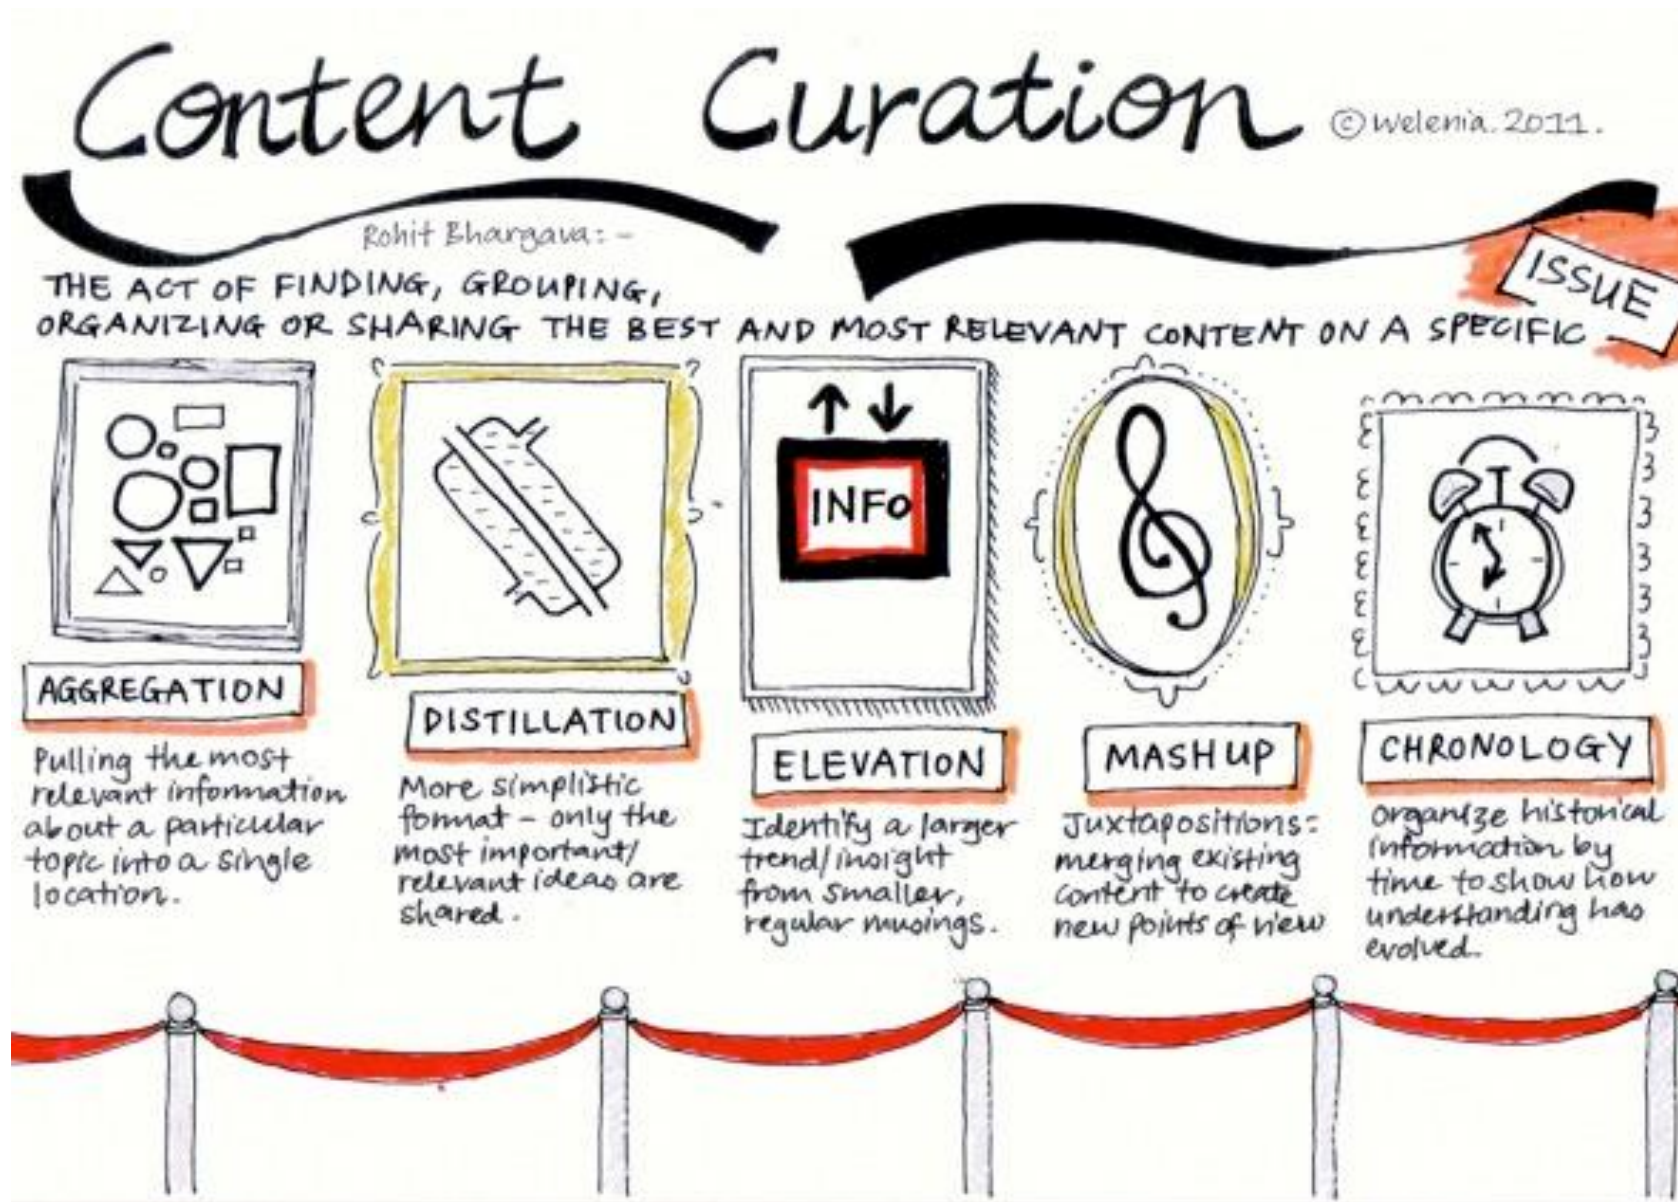 Content Curation
© Welenia. 2011.
Rohit Bhargava: -
THE ACT OF FINDING, GROUPING,
ORGANIZING OR SHARING THE BEST AND MOST RELEVANT CONTENT ON A SPECIFIC
ISSUE
INFO
AGGREGATION
Pulling the most
relevant information
about a particular
topic into a single
location.
DISTILLATION
More simplistic
format - only the
most important/
relevant ideas are
shared.
ELEVATION
Identify a larger
trend/insight
from smaller,
regular musings.
MASHUP
Juxtapositions:
merging existing
content to create
new points of view
CHRONOLOGY
Organize historical
information by
time to show how
understanding has
evolved.